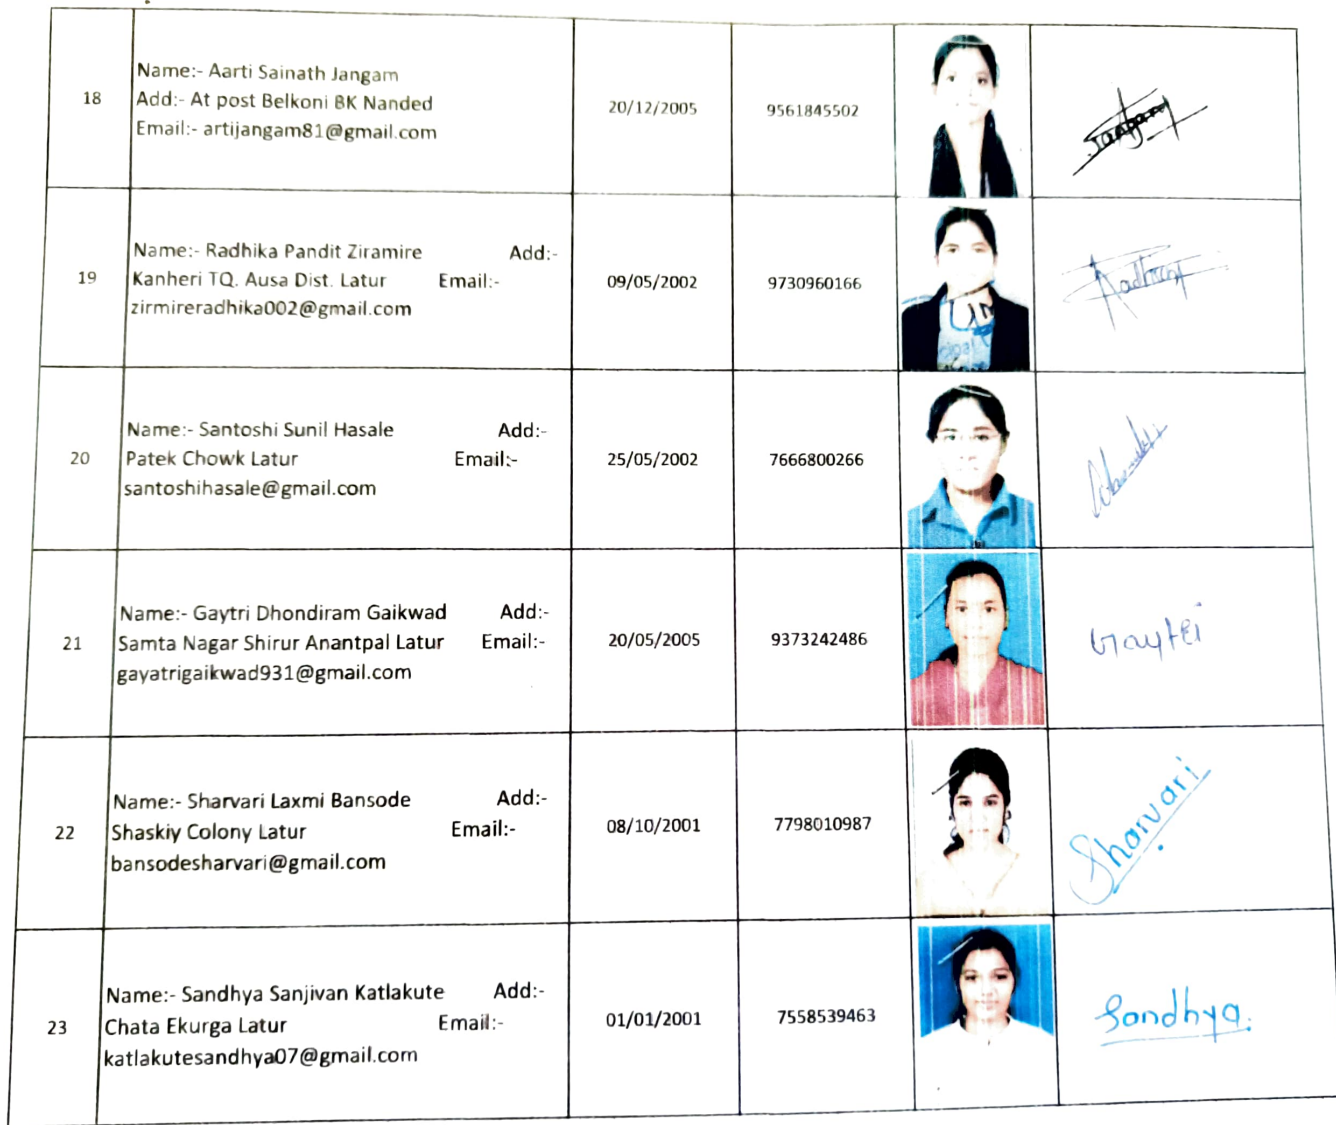 18
Name:- Aarti Sainath Jangam
Add:- At post Belkoni BK Nanded
Email:- artijangam81@gmail.com
20/12/2005
9561845502
Jangam
19
Name:- Radhika Pandit Ziramire Add:-
Kanheri TQ. Ausa Dist. Latur Email:-
zirmireradhika002@gmail.com
09/05/2002
9730960166
20
Name:- Santoshi Sunil Hasale Add:-
Patek Chowk Latur Email:-
santoshihasale@gmail.com
25/05/2002
7666800266
21
Name:- Gaytri Dhondiram Gaikwad Add:-
Samta Nagar Shirur Anantpal Latur Email:-
gayatrigaikwad931@gmail.com
20/05/2005
9373242486
Gaytri
22
Name:- Sharvari Laxmi Bansode Add:-
Shaskiy Colony Latur Email:-
bansodesharvari@gmail.com
08/10/2001
7798010987
Sharvari
23
Name:- Sandhya Sanjivan Katlakute Add:-
Chata Ekurga Latur Email:-
katlakutesandhya07@gmail.com
01/01/2001
7558539463
Sandhya.